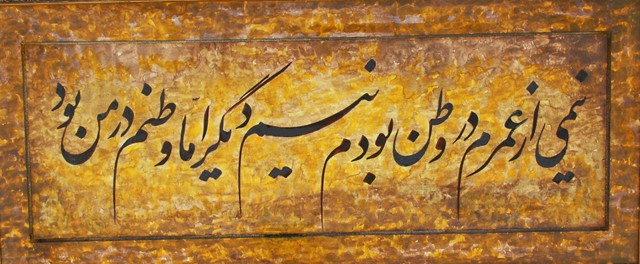 نیمی از عمرم در وطن بودم نیم دیگر امّا وطنم در من بود